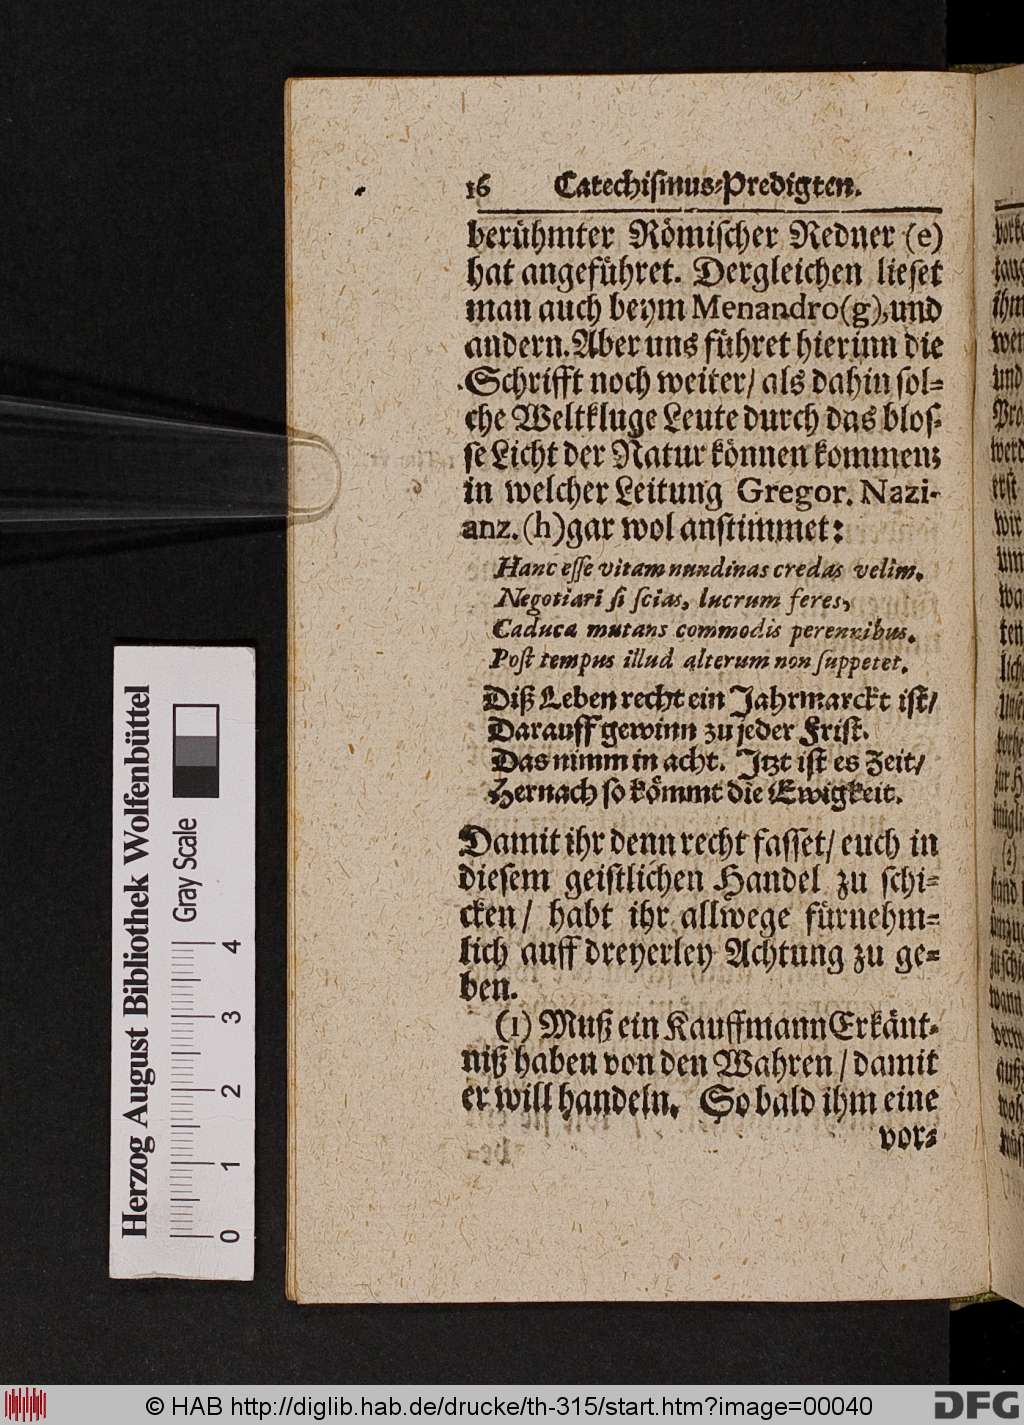 16 Catechismus-Predigten.
berühmter Römischer Redner (e)
hat angeführet. Dergleichen lieset
man auch beym Menandro (g), und
andern. Aber uns führet hierinn die
Schrifft noch weiter/ als dahin sol-
che Weltkluge Leute durch das blos-
se Licht der Natur können kommen;
in welcher Leitung Gregor. Nazi-
anz. (h) gar wol anstimmet:
Hanc esse vitam nundinas credas velim,
Negotiari si scias, lucrum feres,
Caduca mutans commodis perennibus.
Post tempus illud alterum non suppetet.
Diß Leben recht ein Jahrmarckt ist/
Darauff gewinn zu jeder Frist.
Das nimm in acht. Jtzt ist es Zeit/
Hernach so kömmt die Ewigkeit.
Damit ihr denn recht fasset/ euch in
diesem geistlichen Handel zu schi-
cken/ habt ihr allwege fürnehm-
lich auff dreyerley Achtung zu ge-
ben.
(1) Muß ein Kauffmann Erkänt-
niß haben von den Wahren/ damit
er will handeln. So bald ihm eine
vor-
Herzog August Bibliothek Wolfenbüttel
Gray Scale
0 1 2 3 4
© HAB http://diglib.hab.de/drucke/th-315/start.htm?image=00040
DFG